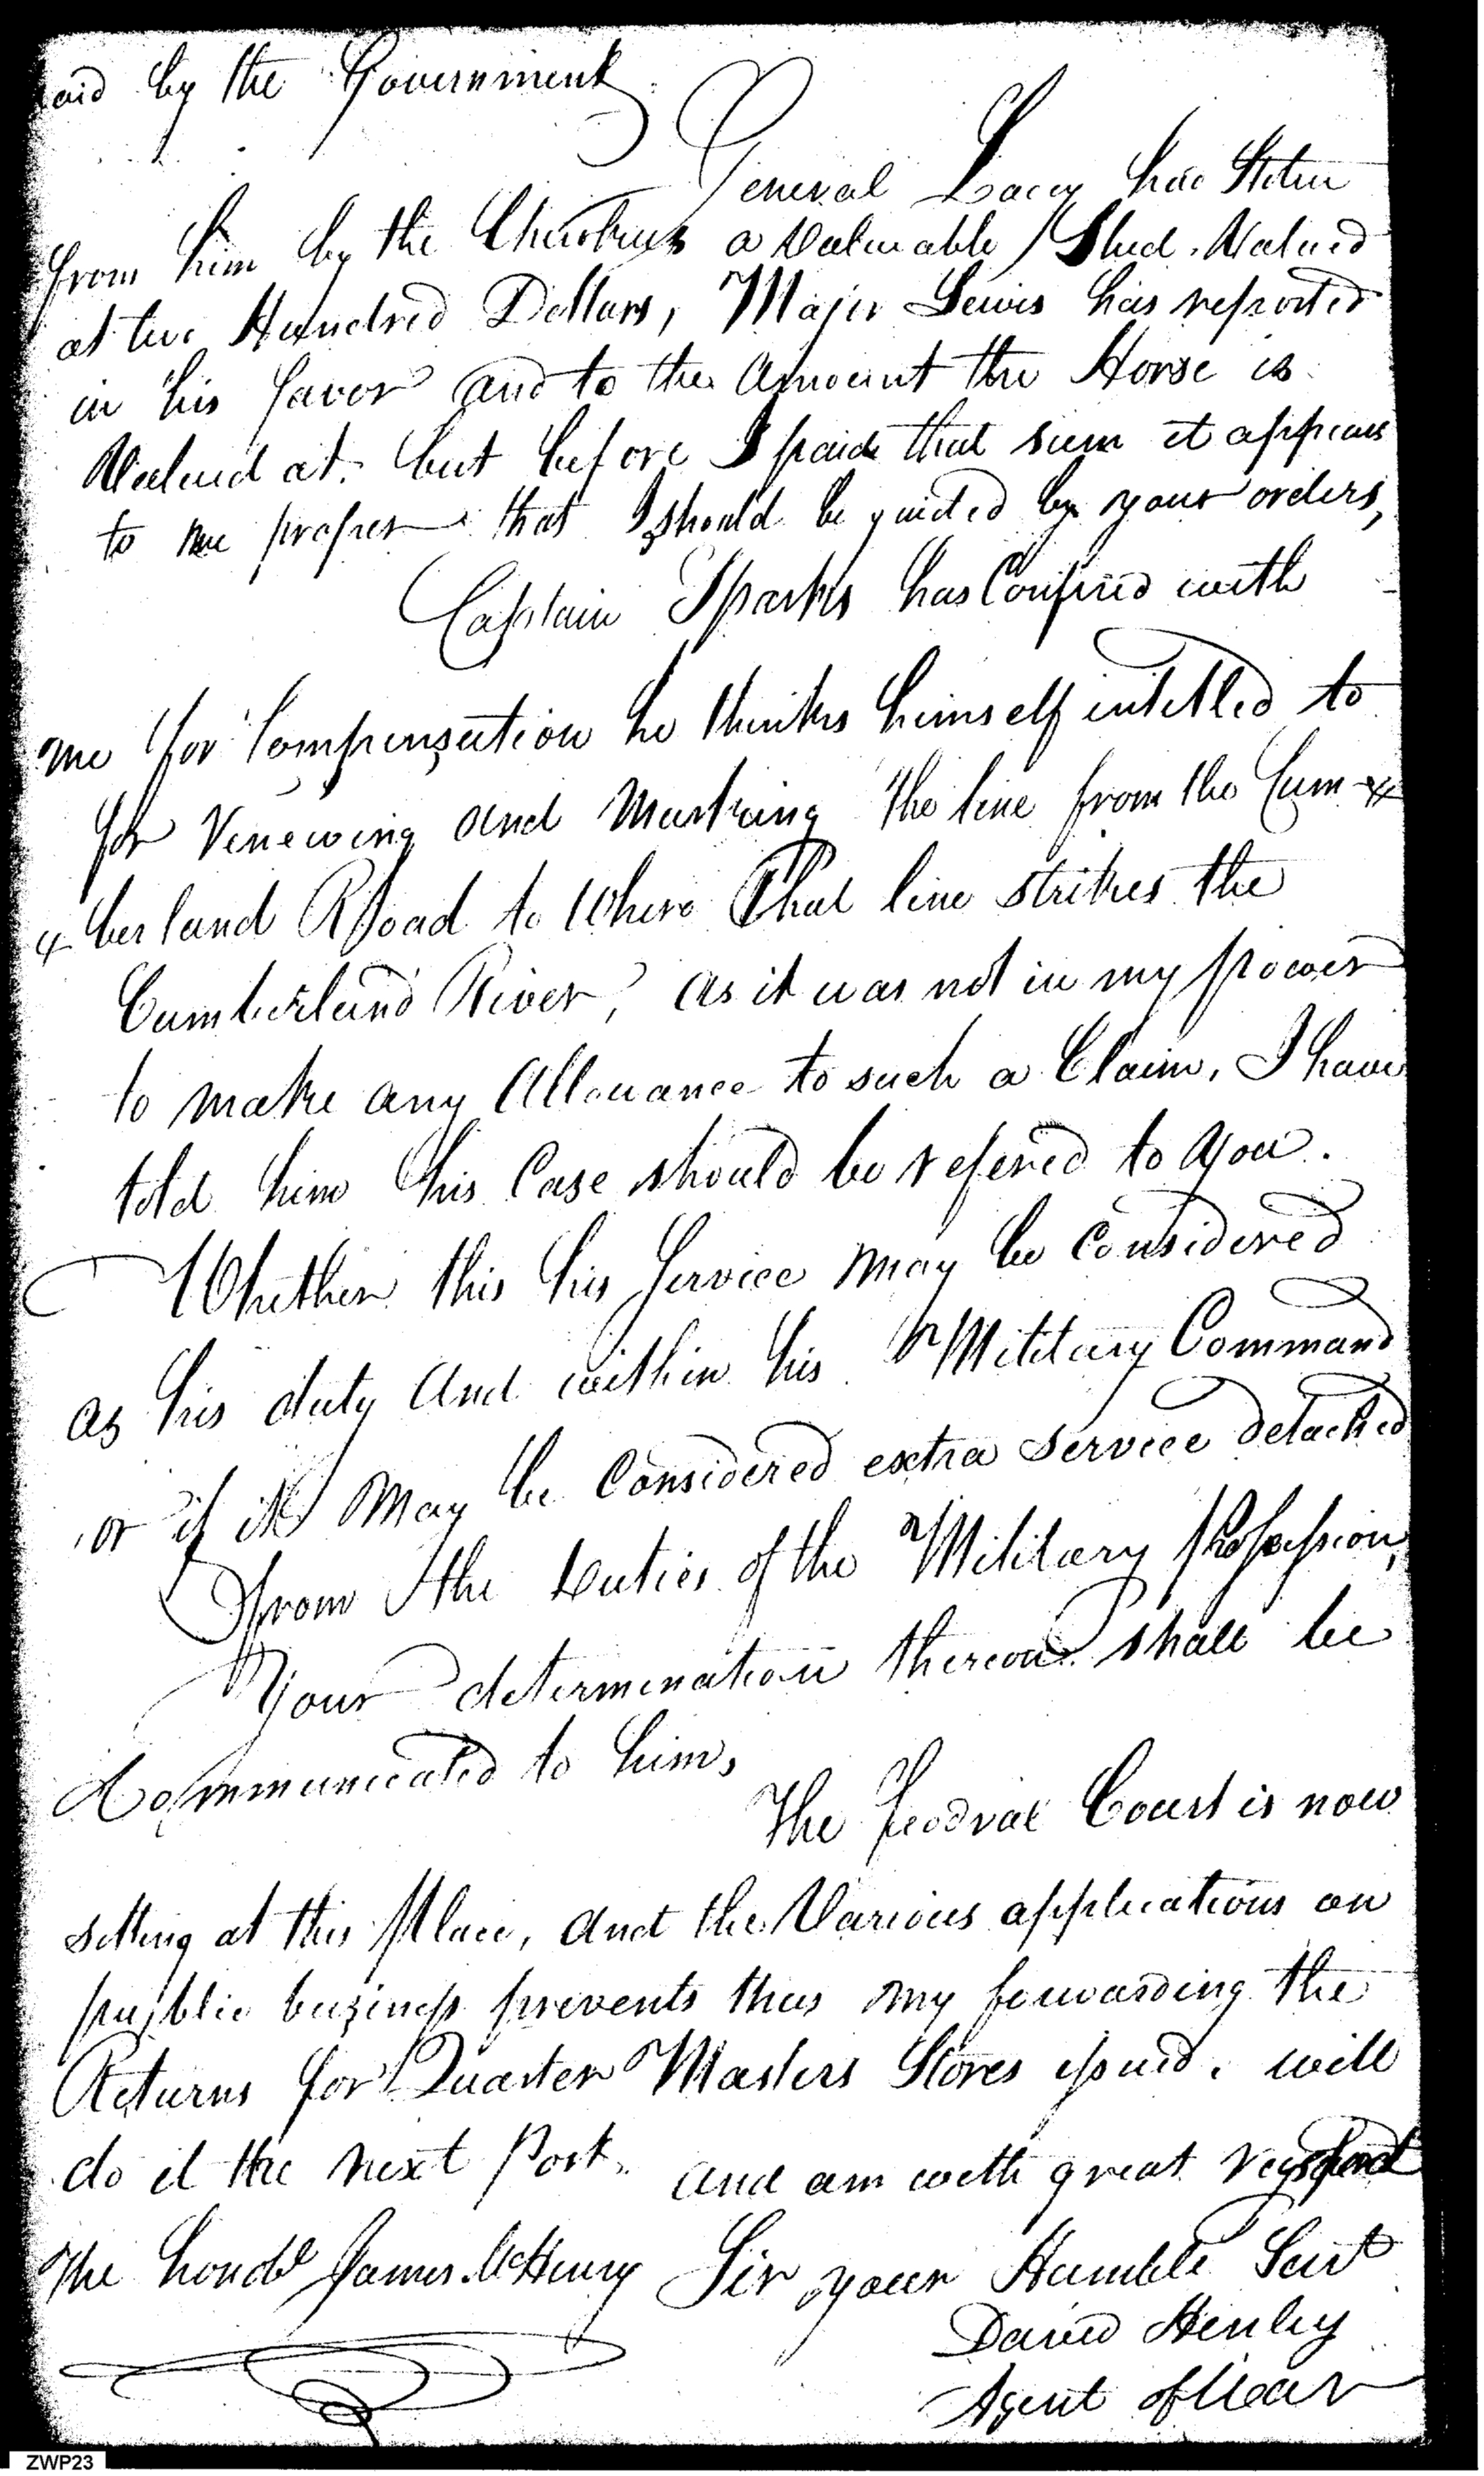 paid by the Government
General Lacey has Stolen
from him by the Cherokees a Valuable Stud. Valued
at two Hundred Dollars, Major Lewis has reported
in his favor and to the Amount the Horse is
Valued at. but before I paid that sum it appears
to me proper that I should be guided by your orders,
Captain Sparks has Confired with
me for Compensation he thinks himself intitled to
for Veiwing and Marking the line from the Cum-
berland Road to Where That line strikes the
Cumberland River, as it was not in my power
to make any Allowance to such a Claim, I have
told him his Case should be refered to you.
Whether this his Service may be Considered
as his duty And within his Military Command
or if it May be Considered extra service detached
from the Duties of the Military Profession,
Your determination thereon shall be
Communicated to him,
The Feodral Court is now
setting at this Place, and the Various applications on
public business prevents thus my forwarding the
Returns for Quarter Masters Stores issued. will
do it the next Post. and am with great respect
The honobl James McHenry Sir your Humble Servt
David Henley
Agent of War
ZWP23